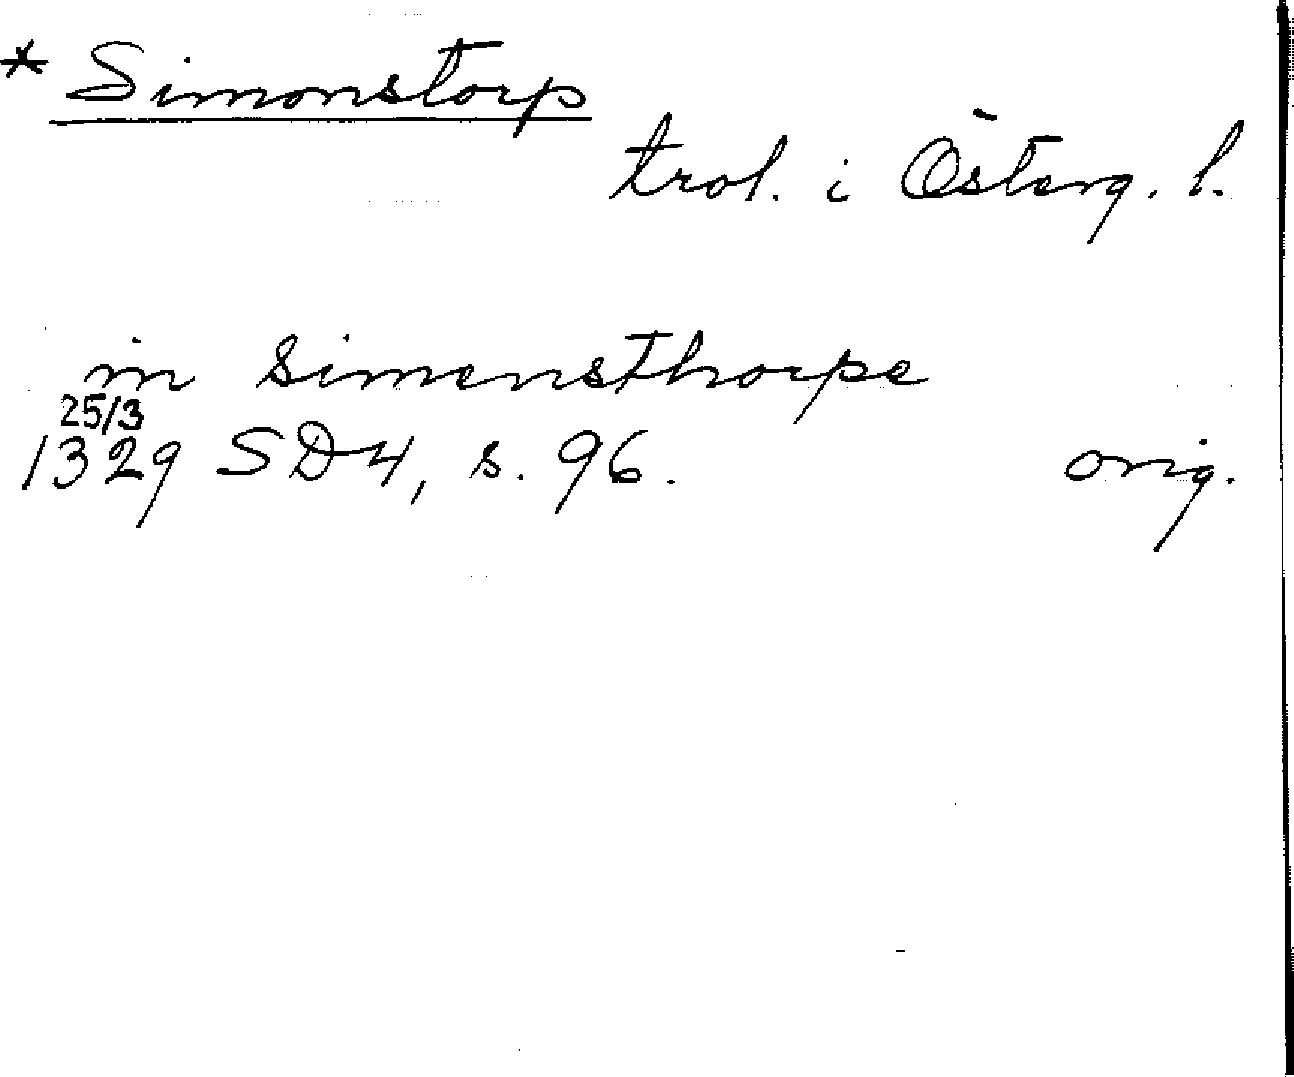 * Simonstorp
trol. i Österg. l.
in Simensthorpe
25/3
1329 SD4, s. 96. orig.